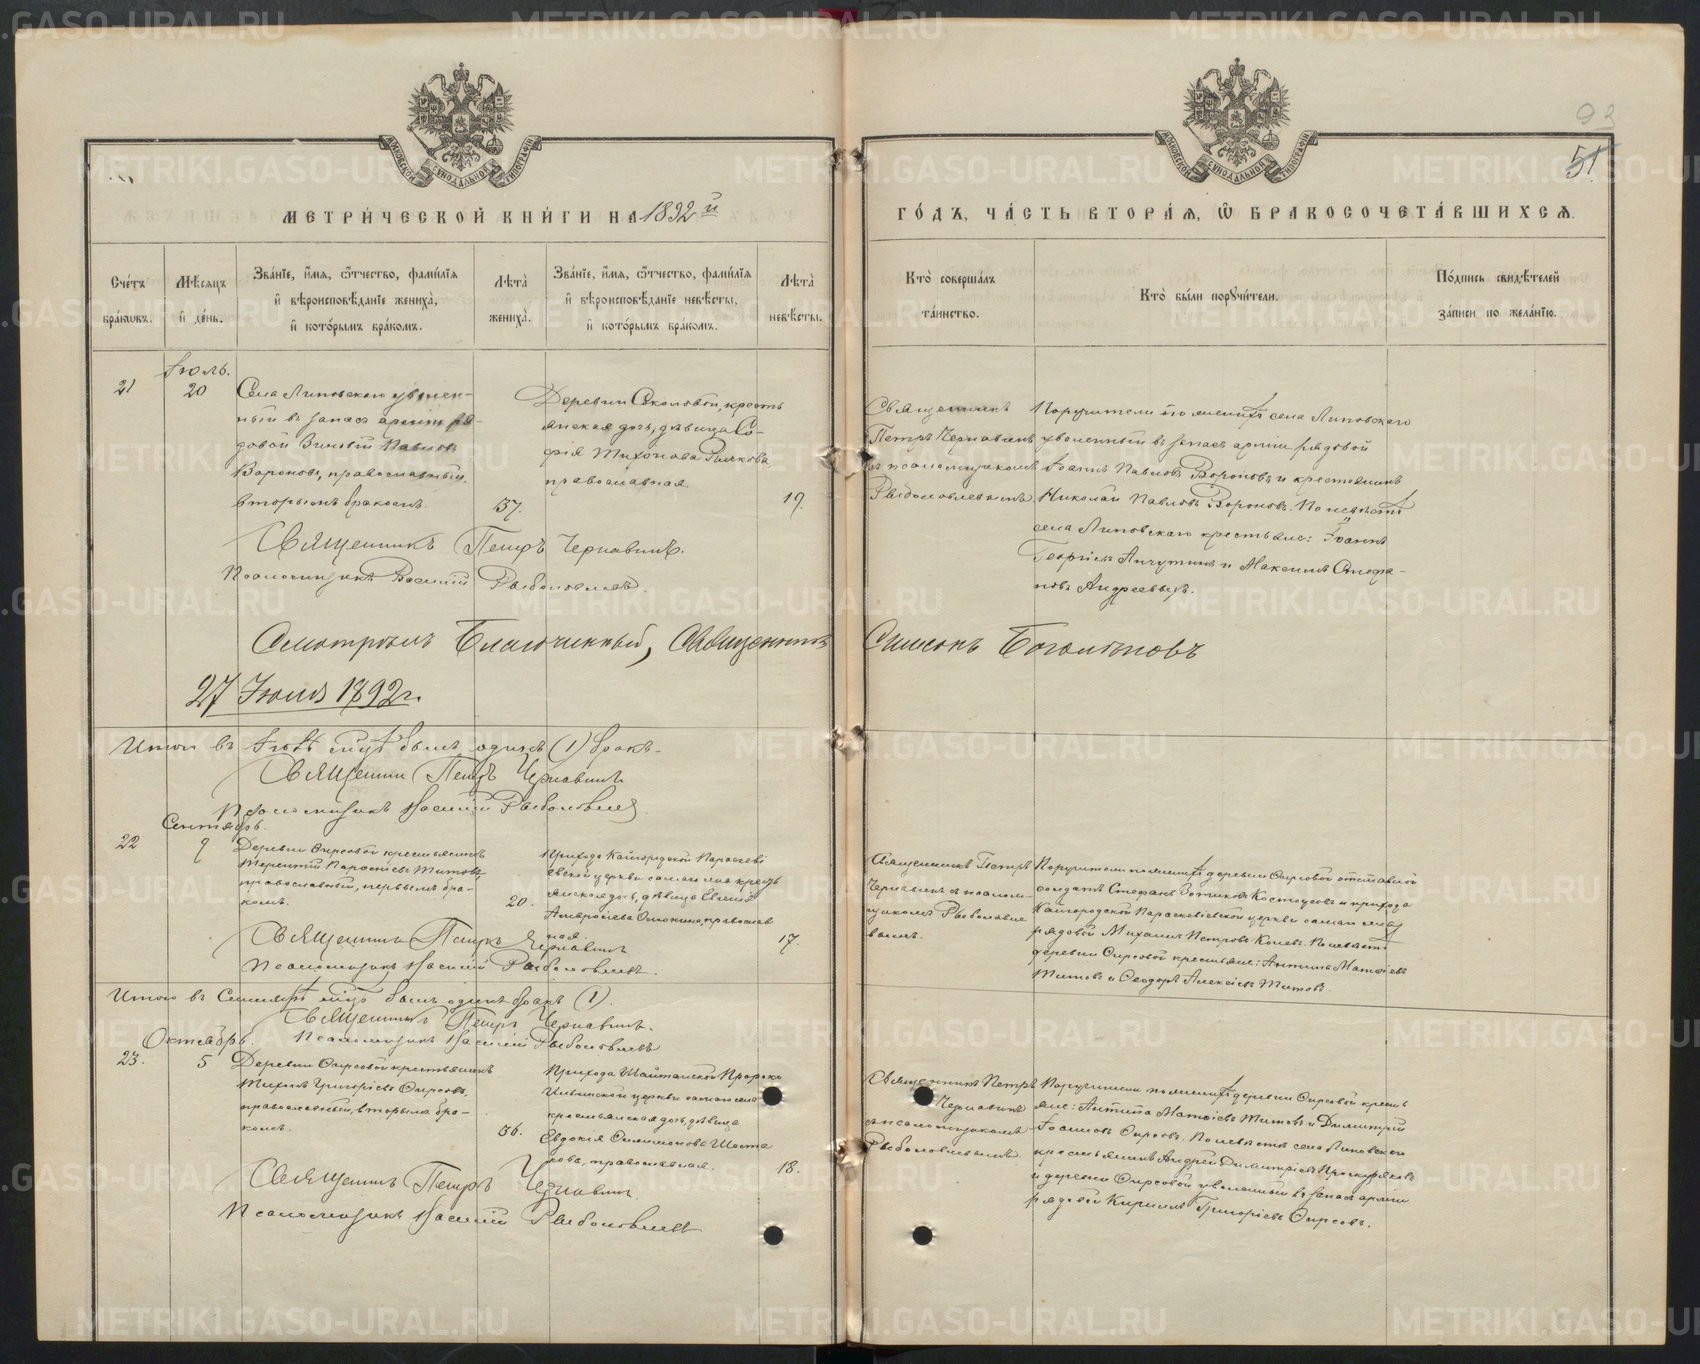 93
51
МЕТРИ́ЧЕСКОЙ КНИ́ГИ НА 1892й
ГО́ДЪ, ЧА́СТЬ ВТОРА́Я, Ѡ БРАКОСОЧЕТА́ВШИХСЯ.
Сче́тъ бра́кѡвъ.
Мѣ́сяцъ и҆ де́нь.
Зва́нїе, и҆́мя, ѻ҆́тчество, фами́лїя
и҆ вѣроисповѣ́данїе жениха̀,
и҆ кото́рымъ бра́комъ.
Лѣта̀ жениха̀.
Зва́нїе, и҆́мя, ѻ҆́тчество, фами́лїя
и҆ вѣроисповѣ́данїе невѣ́сты,
и҆ кото́рымъ бра́комъ.
Лѣта̀ невѣ́сты.
Кто̀ соверша́лъ
та́инство.
Кто̀ бы́ли порꙋчи́тели.
По́дпись свидѣ́телей
за́писи по жела́нїю.
21
Іюль.
20
Села Липовского уволен-
ный въ запасъ арміи ря-
довой Зиновій Павловъ
Вороновъ, православный,
вторымъ бракомъ.
37.
Деревни Соколовой, кресть
янская дочь, дѣвица Со-
фія Тихонова
православная.
19.
Священникъ
Петръ Чернавинъ
съ псаломщикомъ
Рыболовлевымъ.
Поручители по женихѣ села Липовскаго
уволенный въ запасъ арміи рядовой
Іоаннъ Павловъ Вороновъ и крестьянинъ
Николай Павловъ Вороновъ. По невѣстѣ
села Липовскаго крестьяне: Іоаннъ
Георгіевъ Анчутинъ и Максимъ Стефа-
новъ Андреевыхъ.
Священникъ Петръ Чернавинъ.
Псаломщикъ Василій Рыболовлевъ.
Смотрѣлъ Благочинный, Священникъ Симеонъ Боголѣповъ
27 Іюля 1892 г.
Итого въ Іюлѣ м͠цѣ былъ одинъ (1) бракъ.
Священникъ Петръ Чернавинъ
Псаломщикъ Василій Рыболовлевъ
22
Сентябрь.
9
Деревни Фирсовой крестьянинъ
Терентій Титовъ,
православный, первымъ бра-
комъ.
20.
Прихода Кайгородской Параскеві
евской церкви
янская дочь, дѣвица Евгенія
Амвросіева православ
ная.
17.
Священникъ Петръ
Чернавинъ съ псалом-
щикомъ Рыболовле
вымъ.
Поручители по женихѣ деревни Фирсовой отставной
солдатъ Стефанъ Костоусовъ и прихода
Кайгородской Параскевіевской церкви
рядовой Михаилъ Петровъ По невѣстѣ
деревни Фирсовой крестьяне: Антипа Матѳіевъ
Титовъ и Ѳеодоръ Алексіевъ Титовъ.
Священникъ Петръ Чернавинъ
Псаломщикъ Василій Рыболовлевъ.
Итого въ Сентябрѣ м͠цѣ былъ одинъ бракъ (1).
Священникъ Петръ Чернавинъ.
Псаломщикъ Василій Рыболовлевъ
23.
Октябрь.
5
Деревни Фирсовой крестьянинъ
Тихонъ Григоріевъ Фирсовъ,
православный, вторымъ бра-
комъ.
36.
Прихода Шайтанской Пророко
Ильинской церкви
крестьянская дочь, дѣвица
Евдокія Симеонова Шеста
кова, православная.
18.
Священникъ Петръ
Чернавинъ
съ псаломщикомъ
Рыболовлевымъ.
Поручители по женихѣ деревни Фирсовой кресть
яне: Антипа Матѳіевъ Титовъ и Димитрій
Іоанновъ Фирсовъ. По невѣстѣ села Липовскаго
крестьянинъ Андрей Димитріевъ
и деревни Фирсовой уволенный въ запасъ арміи
рядовой Кириллъ Григоріевъ Фирсовъ.
Священникъ Петръ Чернавинъ.
Псаломщикъ Василій Рыболовлевъ
METRIKI.GASO-URAL.RU